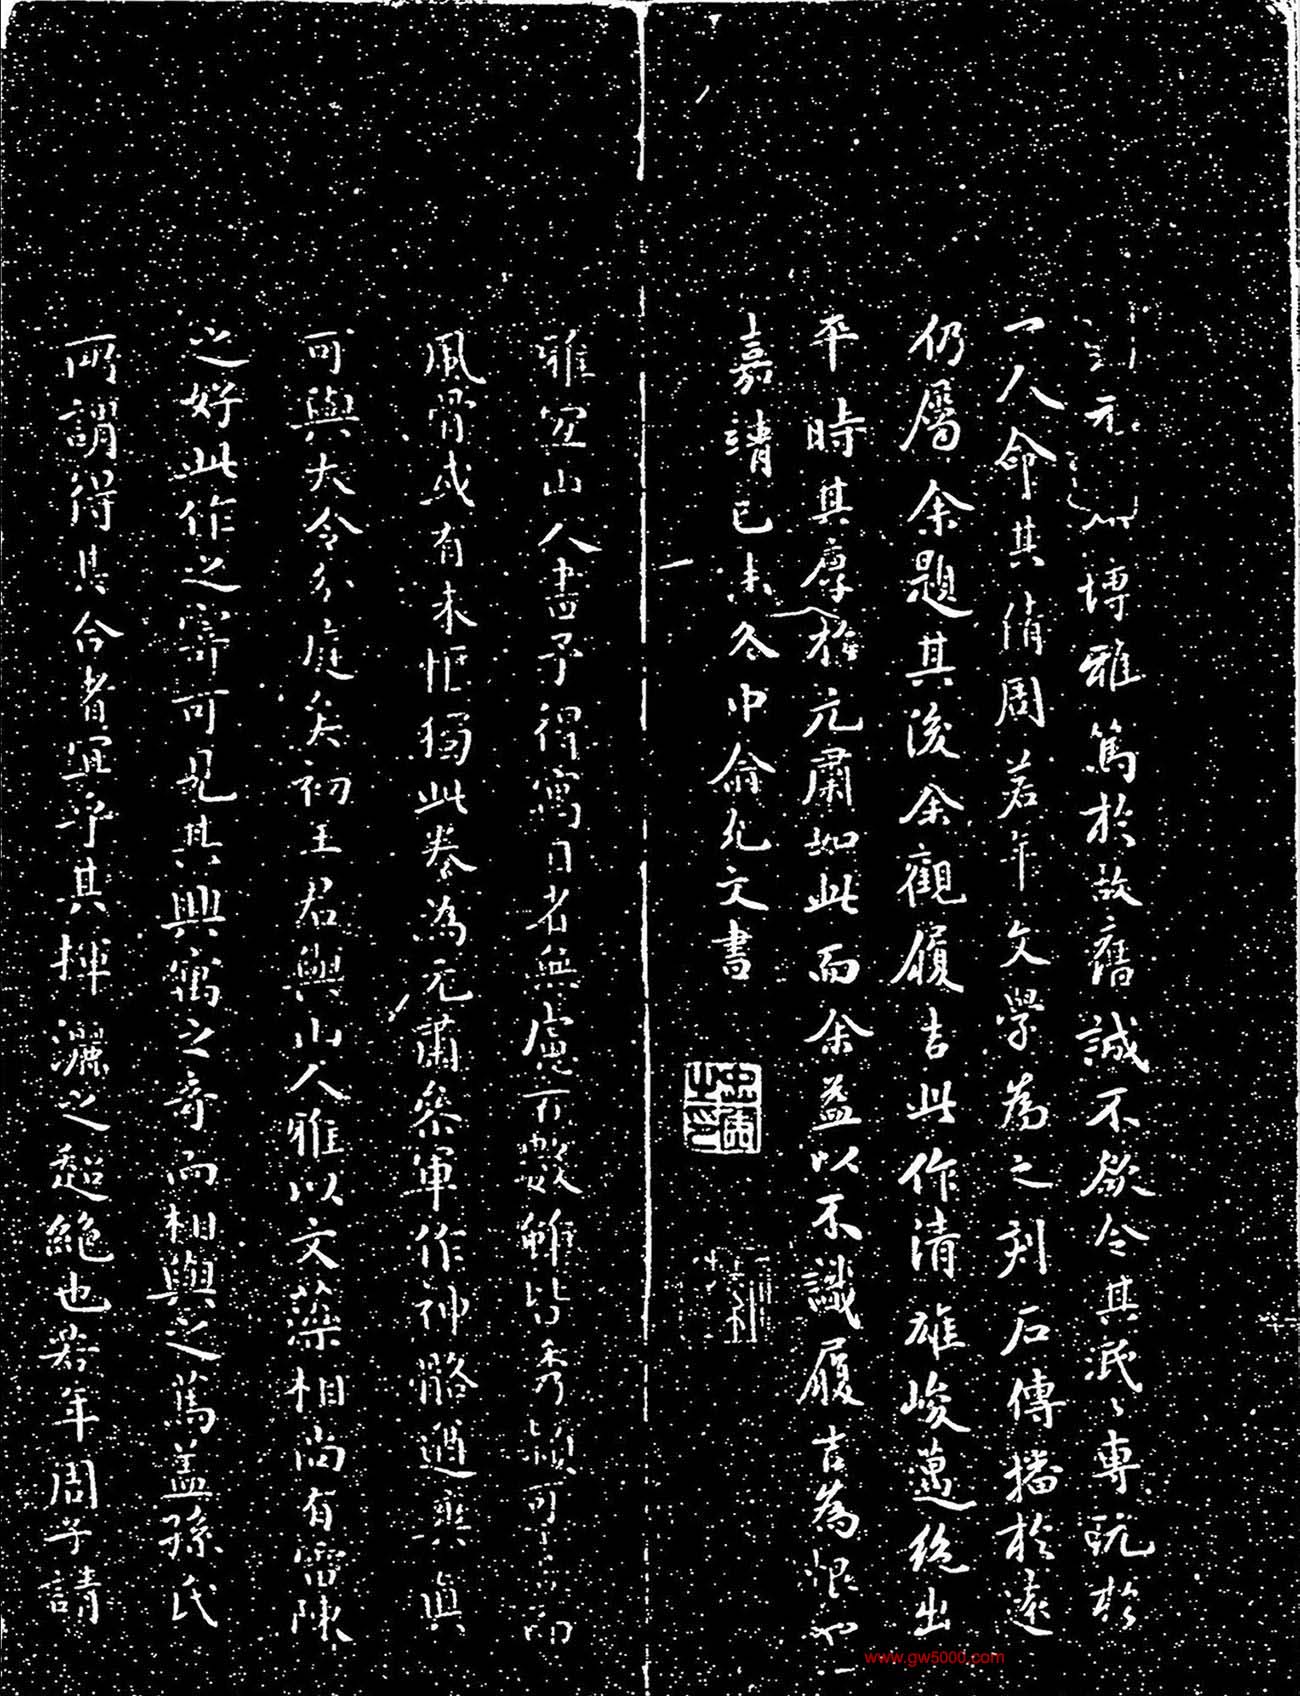 元
博雅篤於故舊誠不欲令其泯〻專玩於
一人命其倩周若年文學為之刻石傳播於遠
仍屬余題其後余觀履吉此作清雄峻邁絕出
平時其厚於元肅如此而余益以不識履吉為恨也
嘉靖己未冬中俞允文書
雅宜山人書予得寓目者無慮百數雖皆秀穎可而
風骨或有未恇獨此卷為元肅參軍作神腦遒爽真
可與大令分庭矣初王君與山人雅以文藻相尚有雷陳
之好此作之寄可見其興寓之奇而相與之篤蓋孫氏
所謂得其合者宜乎其揮灑之超絕也若年周子請
www.gw5000.com